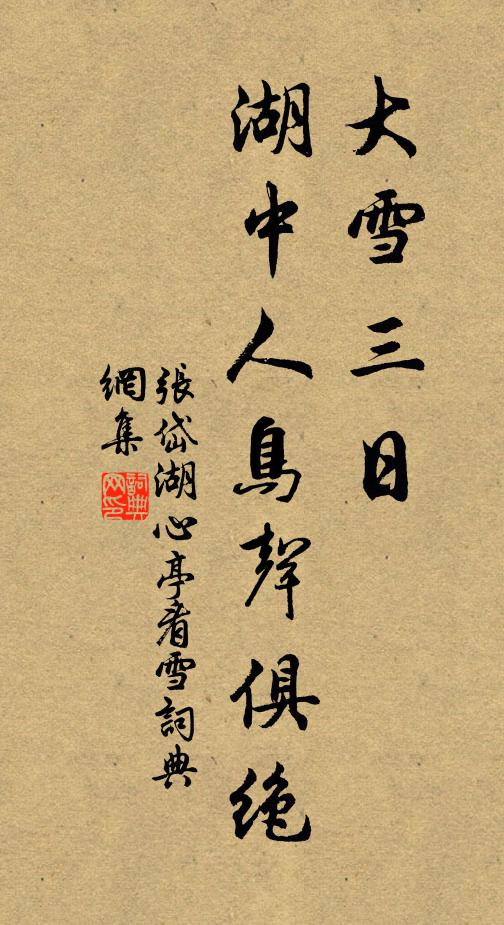 大雪三日
湖中人鳥聲俱絶
張岱湖心亭看雪詞典
網集
詞典
网印